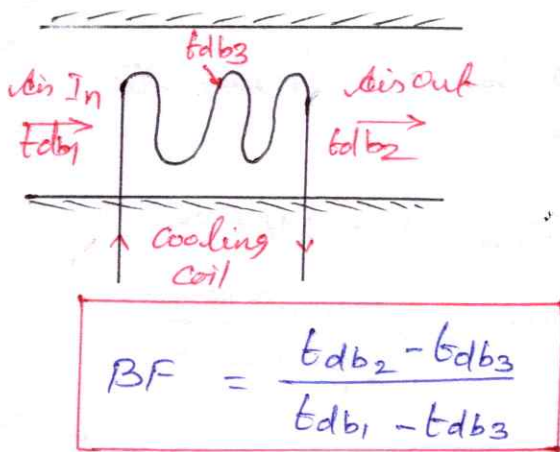 tdb3
Air In
tdb1
Air Out
tdb2
cooling
coil
BF = tdb2 - tdb3 / tdb1 - tdb3